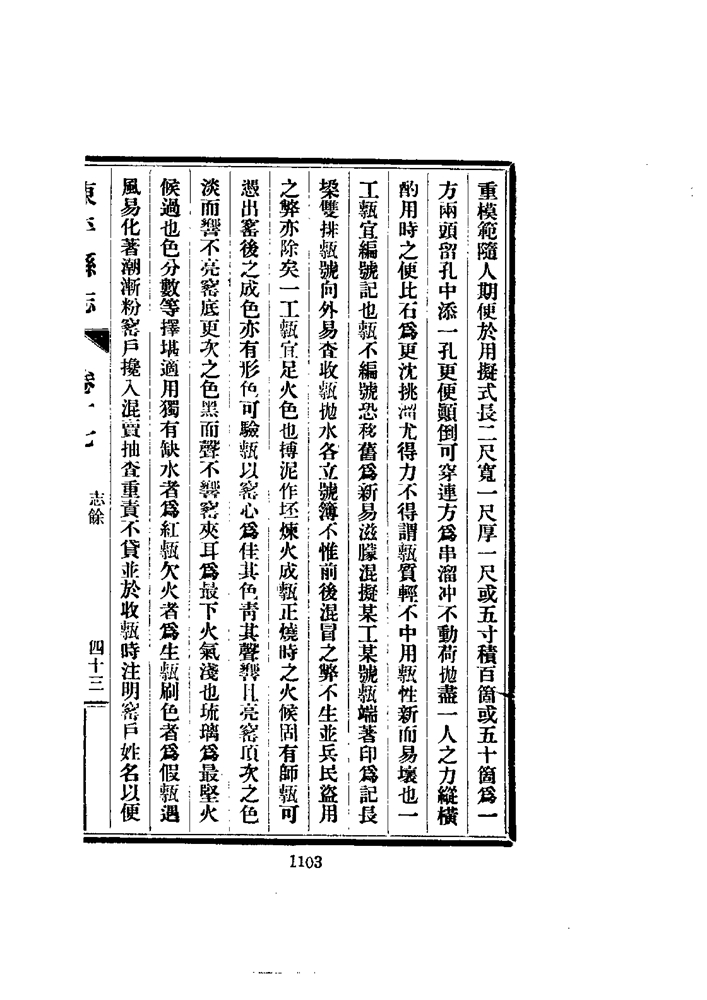 重模範隨人期便於用擬式長二尺寬一尺厚一尺或五寸積百箇或五十箇爲一
方兩頭留孔中添一孔更便顚倒可穿連方爲串溜冲不動荷拋盡一人之力縱橫
酌用時之便比石爲更沈挑溜尤得力不得謂甎質輕不中用甎性新而易壞也一
工甎宜編號記也甎不編號恐移舊爲新易滋朦混擬某工某號甎端著印爲記長
垜雙排甎號向外易查收甎拋水各立號簿不惟前後混冒之弊不生並兵民盜用
之弊亦除矣一工甎宜足火色也摶泥作坯煉火成甎正燒時之火候固有師甎可
憑出窰後之成色亦有形色可驗甎以窰心爲佳其色靑其聲響且亮窰頂次之色
淡而響不亮窰底更次之色黑而聲不響窰夾耳爲最下火氣淺也琉璃爲最堅火
候過也色分數等擇堪適用獨有缺水者爲紅甎欠火者爲生甎刷色者爲假甎遇
風易化著潮漸粉窰戶攙入混賣抽查重責不貸並於收甎時注明窰戶姓名以便
東平縣志 卷十七 志餘 四十三
1103